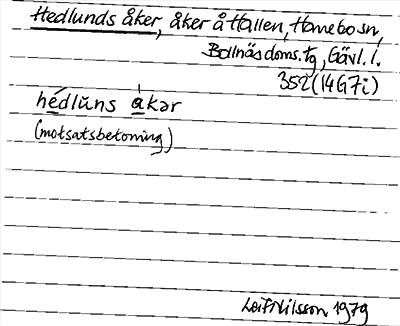 Hedlunds åker, åker å Hallen, Homebosn,
Bollnäs doms. tg, Gävl. l.
352 (14G7i)
hédlŭns åkər
(motsatsbetoning)
Leif Nilsson 1979